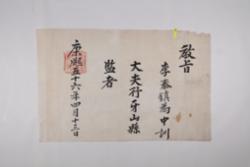 敎旨
李泰鎭爲中訓
大夫行牙山縣
監者
康熙五十六年四月十三日